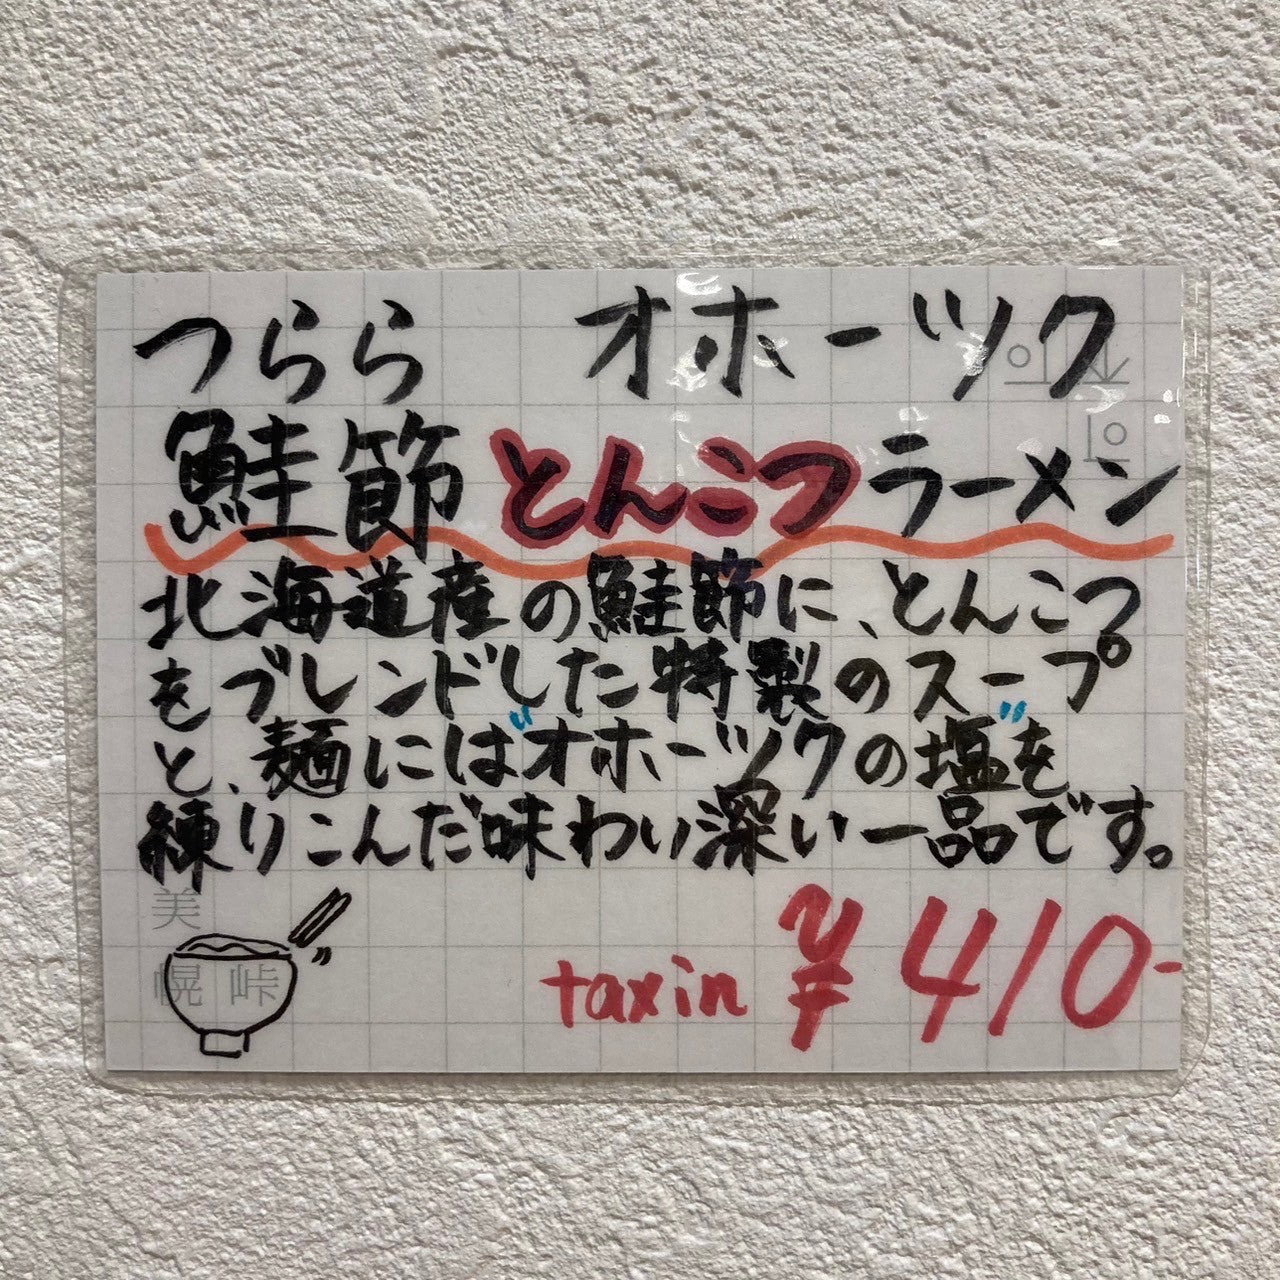 つらら オホーツク
鮭節とんこつラーメン
北海道産の鮭節に、とんこつ
をブレンドした特製のスープ
と、麺には"オホーツクの塩"を
練りこんだ味わい深い一品です。
美
幌 峠
taxin ¥410-